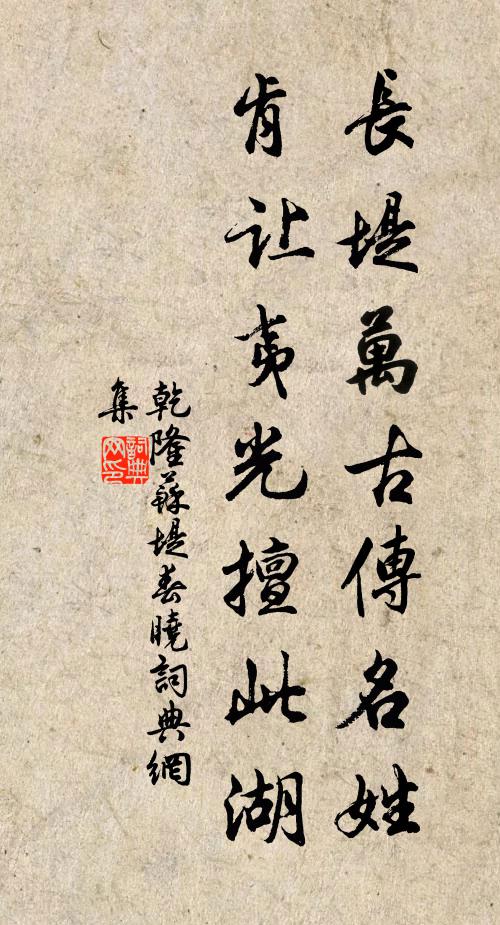 長堤萬古傳名姓
肯让夷光擅此湖
乾隆蘇堤春曉詞典網
集
詞典網印